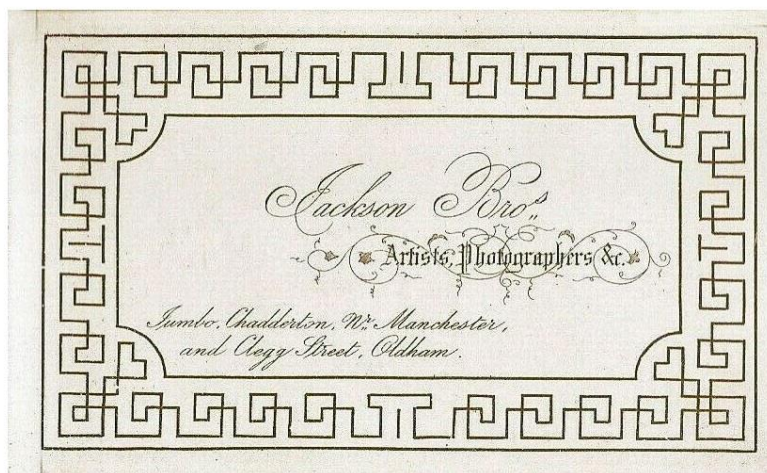 Jackson Bro.s
Artists, Photographers &c.
Jumbo, Chadderton, Nr. Manchester,
and Clegg Street, Oldham.